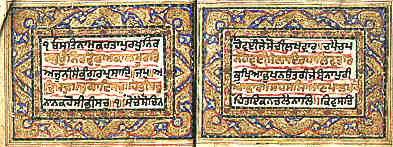 ੴ ਸਤਿਨਾਮੁਕਰਤਾਪੁਰਖੁਨਿਰ
ਭਉਨਿਰਵੈਰੁਅਕਾਲਮੂਰਤਿ
ਅਜੂਨੀਸੈਭੰਗੁਰਪ੍ਰਸਾਦਿ॥ ਜਪੁ॥ ਆ
ਦਿਸਚੁਜੁਗਾਦਿਸਚੁਹੈਭੀਸਚੁਨਾ
ਨਕਹੋਸੀਭੀਸਚੁ॥੧॥ ਸੋਚੈਸੋਚਿਨ
ਹੋਵਈਜੇਸੋਚੀਲਖਵਾਰ॥ ਚੁਪੈਚੁਪ
ਨਹੋਵਈਜੇਲਾਇਰਹਾਲਿਵਤਾਰ॥
ਭੁਖਿਆਭੁਖਨਉਤਰੀਜੇਬੰਨਾਪੁਰੀ
ਆਭਾਰ॥ ਸਹਸਸਿਆਣਪਾਲਖਹੋ
ਹਿਤਇਕਨਚਲੈਨਾਲਿ॥ ਕਿਵਸਚਿ